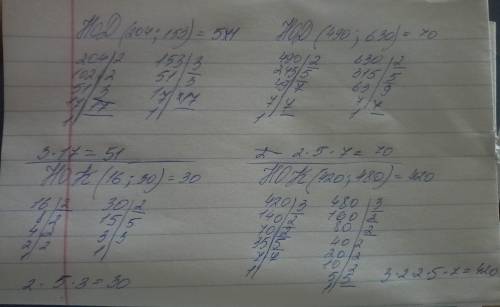 НОД (204; 153) = 51
204 | 2
102 | 2
51 | 3
17 | 17
1
153 | 3
51 | 3
17 | 17
1
3·17 = 51
НОД (490; 630) = 70
490 | 2
245 | 5
49 | 7
7 | 7
1
630 | 2
315 | 5
63 | 9
7 | 7
1
2·5·7 = 70
НОК (16; 30) = 30
16 | 2
8 | 2
4 | 2
2 | 2
1
30 | 2
15 | 5
3 | 3
1
2·5·3 = 30
НОК (420; 480) = 420
420 | 3
140 | 2
70 | 2
35 | 5
7 | 7
1
480 | 3
160 | 2
80 | 2
40 | 2
20 | 2
10 | 2
5 | 5
1
3·2·2·5·7 = 420